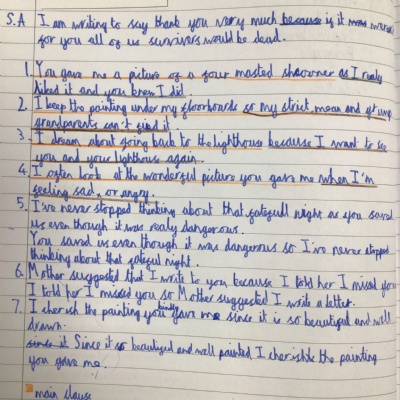 S.A I am writing to say thank you very much because if it
for you all of us survivers would be dead.
1. You gave me a picture of a four masted shooner as I realy
liked it and you knew I did.
2. I keep the painting under my floorboards so my strict, mean and
grandparents can't find it.
3. I dream about going back to the lighthouse because I want to see
you and your lighthouse again.
4. I often look at the wonderful picture you gave me when I'm
feeling sad, or angry.
5. I've never stopped thinking about that fatefull night as you saved
us even though it was realy dangerous.
You saved us even though it was dangerous so I've never stopped
thinking about that fateful night.
6. Mother suggested that I write to you because I told her I missed you
I told her I missed you so Mother suggested I write a letter.
7. I cherish the painting you kindly gave me since it is so beautiful and well
drawn.
since it Since it is so beautiful and well painted I cherishde the painting
you gave me.
main clause